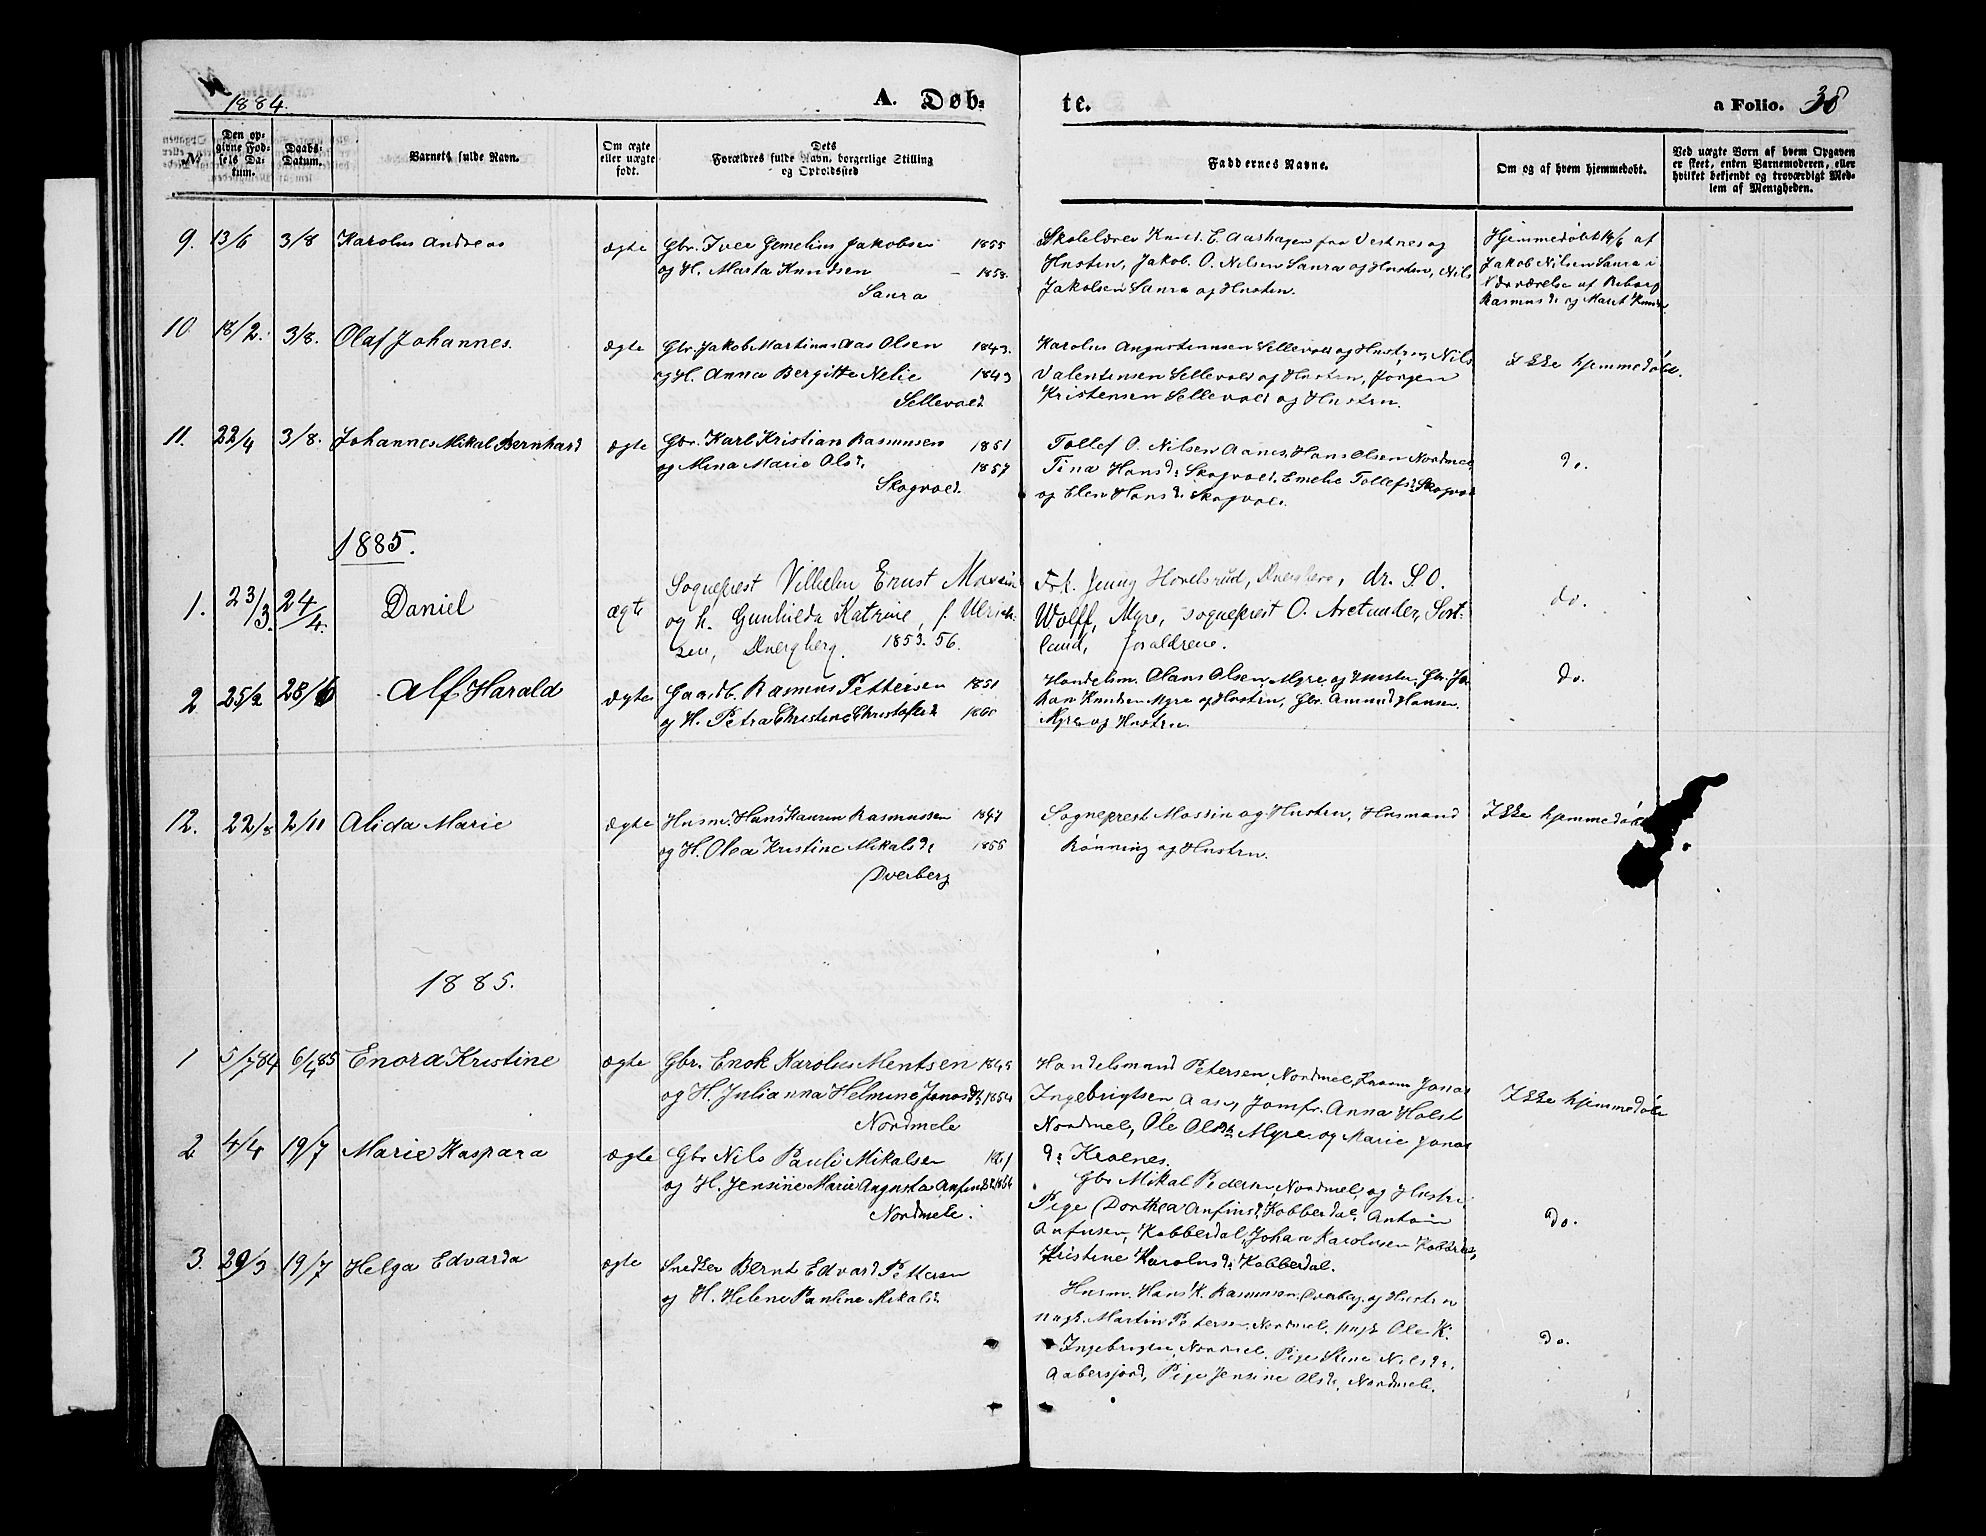 1884.
A. Døb-
te.
a Folio. 38
№
Den op-
givne Fød-
sels Da-
tum.
Daabs-
Datum.
Barnets fulde Navn.
Om ægte
eller uægte
født.
Dets
Forældres fulde Navn, borgerlige Stilling
og Opholdssted
Faddernes Navne.
Om og af hvem hjemmedøbt.
Ved uægte Børn af hvem Opgaven
er skeet, enten Barnemoderen, eller
hvilket bekjendt og troværdigt Med-
lem af Menigheden.
9. 13/6 3/8 Karolus Andreas ægte Gbr. Iver Gemelius Jakobsen 1855
og H. Marta Knudsen – 1858.
Saura
Skolelærer Knud E. Aashagen fra Vestnes og
Hustru, Jakob O. Nilsen Saura og Hustru, Nils
Jakobsen Saura og Hustru.
Hjemmedøbt 18/6 af
Jakob Nilsen Saura i
Overværelse af
Rasmusd: og Marit
10. 18/2. 3/8. Olaf Johannes. ægte Gbr. Jakob Martinus Aas Olsen 1843.
og H. Anna Bergitte Nelie 1843
Sellevold
Karolus Angustinusen Sellevold og Hustru, Nils
Valentinsen Sellevold og Hustru, Jørgen
Kristensen Sellevold og Hustru.
Ikke hjemmedøbt.
11. 22/4 3/8. Johannes Mikal Bernhard ægte Gbr. Karl Kristian Rasmusen 1851
og Mina Marie Olsd: 1857
Skogvold.
Tollef O. Nilsen Aanes, Hans Olsen Nordmel,
Tina Hansd: Skogvold, Emelie Tollefsd: Skogvold
og Elen Hansd: Skogvold.
do.
1885.
1. 23/3. 24/4. Daniel ægte Sogneprest Vilhelm Ernst Mossin
og h. Gunhilda Katrine, f. Ulrich-
sen, Dverberg. 1853. 56.
Frk. Jenny Hovelsrud, Dverberg, dr. S. O.
Wolff, Myre, sogneprest O. Arctander, Sort-
land, forældrene.
do.
2 25/2 28/6 Alf Harald ægte Gaardb. Rasmus Pettersen 1851
og H. Petra Christine Christofersd: 1860
Handelsm. Olaus Olsen, Myre og Hustru, Gbr. Jo
han Knudsen Myre og Hustru, Gbr. Amund Hansen
Myre og Hustru
do.
12. 22/8 2/11 Alida Marie ægte Husm. Hans Kaurin Rasmussen 1847
og H. Olea Kristine Mikalsd: 1855
Dverberg
Sogneprest Mossin og Hustru, Husmand
Rønning og Hustru.
Ikke hjemmedøbt
1885.
1 5/7 84 6/4 85 Enora Kristine ægte Gbr. Enok Karolus Mentsen 1845
og H. Julianna Helmine Jonasd: 1854
Nordmele
Handelsmand Petersen, Nordmel, Jonas
Ingebrigtsen Aas, Jomfr. Anna Holst
Nordmel, Ole Olsen Myre og Marie Jonas
d: Kroenes.
Ikke hjemmedøbt
2 4/4 19/7 Marie Kaspara ægte Gbr Nils Pauli Mikalsen 1861
og H. Jensine Marie Angusta Anfinsd: 1864
Nordmele.
Gbr Mikal Pedersen, Nordmel, og Hustru
Pige Dorthea Anfinsd: Kobberdal, Anton
Anfinsen, Kobberdal, Johan Karolusen Kobberdal,
Kristine Karolusd: Kobberdal.
do.
3. 29/3 19/7 Helga Edvarda ægte Snedker Bernt Edvard Petersen
og H. Helene Pauline Mikalsd:
Husm. Hans K. Rasmusen, Dverberg, og Hustru
ungk. Martin Petersen Nordmel, ungk Ole K.
Ingebrigtsen, Nordmel, Pige Stina Nilsd:
Aabergsjord, Pige Jensine Olsd:, Nordmele.
do.